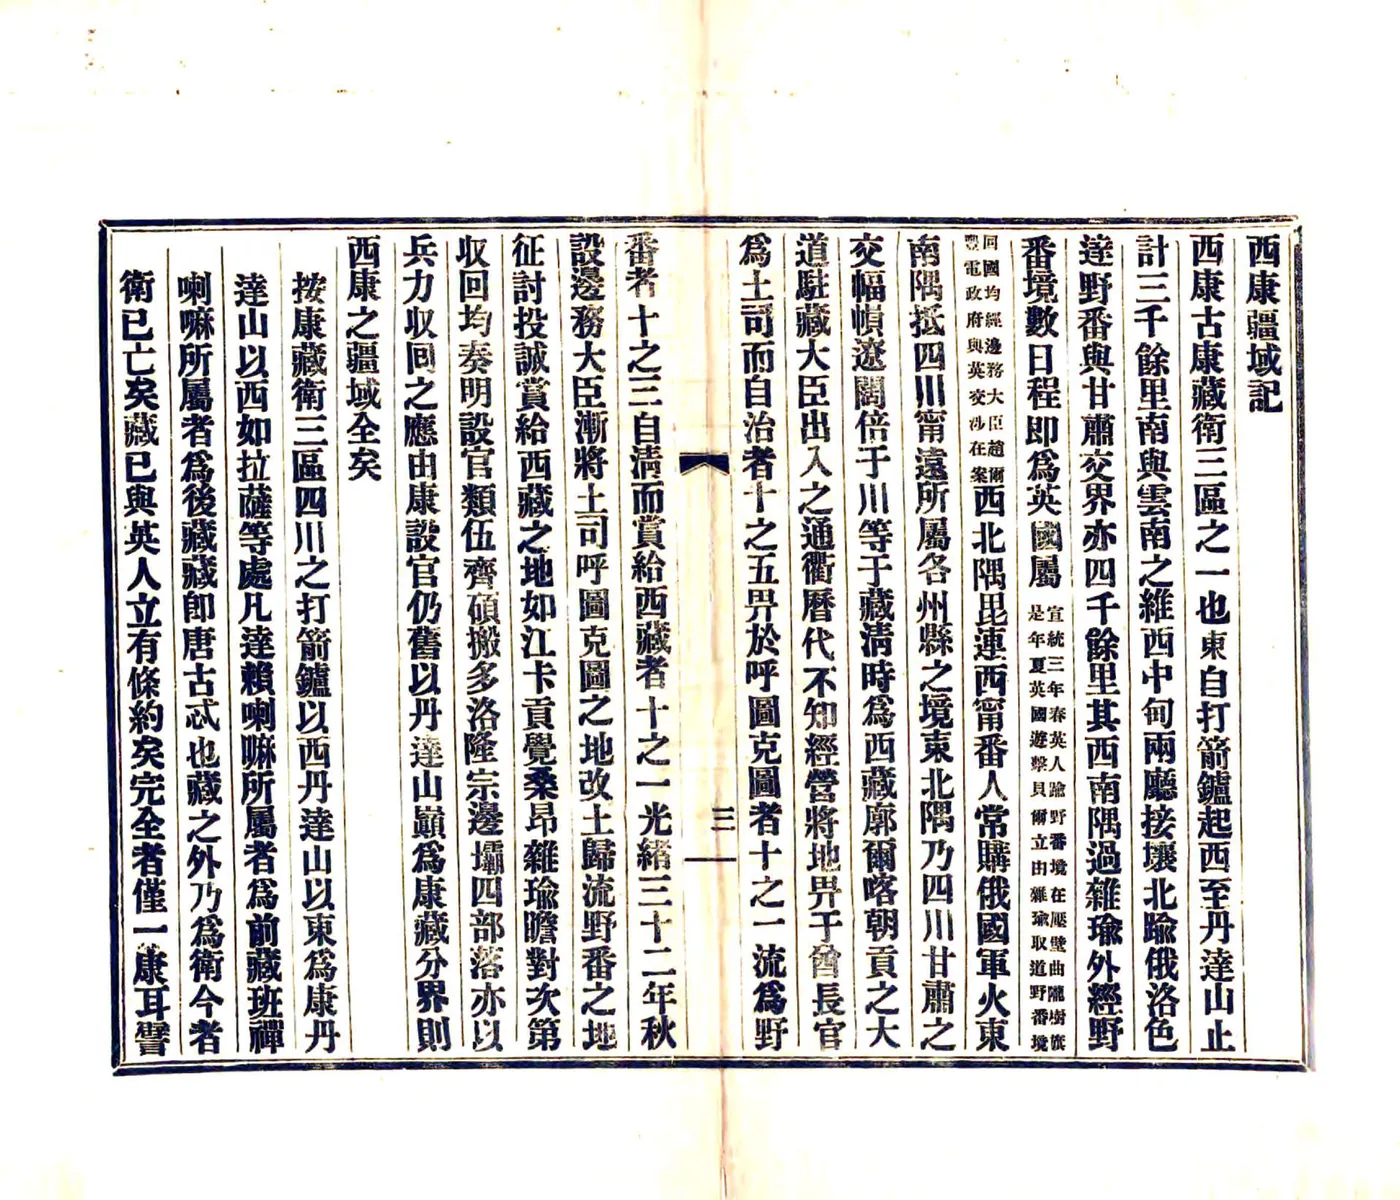 西康疆域記
西康古康藏衛三區之一也東自打箭鑪起西至丹達山止
計三千餘里南與雲南之維西中甸兩廳接壤北踰俄洛色
達野番與甘肅交界亦四千餘里其西南隅過雜瑜外經野
番境數日程即爲英國屬
宣統三年春英人踰野番境在壓壁曲隴樹旗
是年夏英國遊擊貝爾立由雜瑜取道野番境
回國均經邊務大臣趙爾
豐電政府與英交涉在案
西北隅毘連西甯番人常購俄國軍火東
南隅抵四川甯遠所屬各州縣之境東北隅乃四川甘肅之
交幅幀遼闊倍于川等于藏清時爲西藏廓爾喀朝貢之大
道駐藏大臣出入之通衢歷代不知經營將地畀于酋長官
爲土司而自治者十之五畀於呼圖克圖者十之一流爲野
三
番者十之三自淸而賞給西藏者十之一光緒三十二年秋
設邊務大臣漸將土司呼圖克圖之地改土歸流野番之地
征討投誠賞給西藏之地如江卡貢覺桑昂雜瑜瞻對次第
収回均奏明設官類伍齊碩搬多洛隆宗邊壩四部落亦以
兵力収回之應由康設官仍舊以丹達山巓爲康藏分界則
西康之疆域全矣
按康藏衛三區四川之打箭鑪以西丹達山以東爲康丹
達山以西如拉薩等處凡達賴喇嘛所屬者爲前藏班禪
喇嘛所屬者爲後藏藏卽唐古忒也藏之外乃爲衛今者
衛已亡矣藏已與英人立有條約矣完全者僅一康耳譬